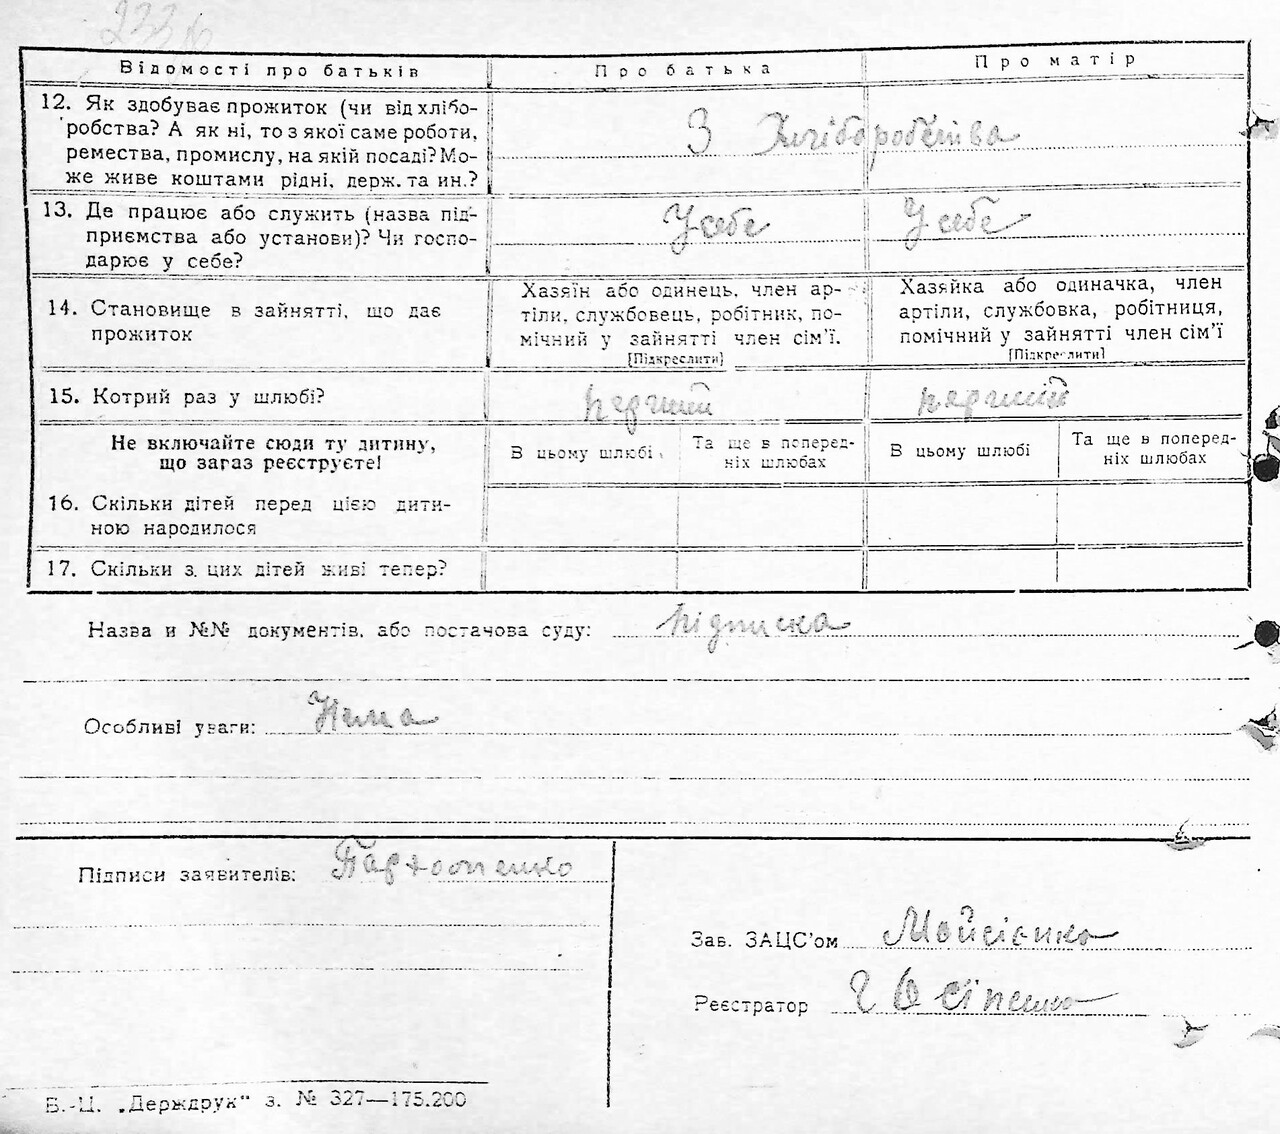 Відомості про батьків Про батька Про матір
12. Як здобуває прожиток (чи від хлібо-
робства? А як ні, то з якої саме роботи,
ремества, промислу, на якій посаді? Мо-
же живе коштами рідні, держ. та ин.?
З хліборобства
13. Де працює або служить (назва під-
приємства або установи)? Чи госпо-
дарює у себе?
У себе У себе
14. Становище в зайнятті, що дає
прожиток
Хазяїн або одинець, член ар-
тіли, службовець, робітник, по-
мічний у зайнятті член сім'ї.
[Підкреслити]
Хазяйка або одиначка, член
артіли, службовка, робітниця,
помічний у зайнятті член сім'ї
[Підкреслити]
15. Котрий раз у шлюбі? перший перший
Не включайте сюди ту дитину,
що загаз реєструєте!
В цьому шлюбі
Та ще в поперед-
ніх шлюбах
В цьому шлюбі
Та ще в поперед-
ніх шлюбах
16. Скільки дітей перед цією дити-
ною народилося
17. Скільки з цих дітей живі тепер?
Назва и №№ документів, або постачова суду: підписка
Особливі уваги: Нема
Підписи заявителів:
Зав. ЗАЦС'ом Мойсієнко
Реєстратор Г Осіпенко
Б.-Ц. „Держдрук" з. № 327—175.200